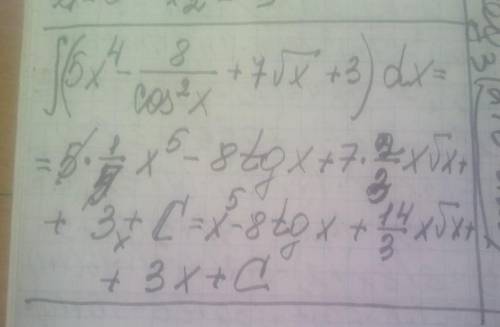 ∫(5x⁴ - 8/cos²x + 7√x + 3) dx =
= 5 · 1/5 x⁵ - 8 tg x + 7 · 2/3 x√x +
+ 3x + C = x⁵ - 8 tg x + 14/3 x√x +
+ 3x + C